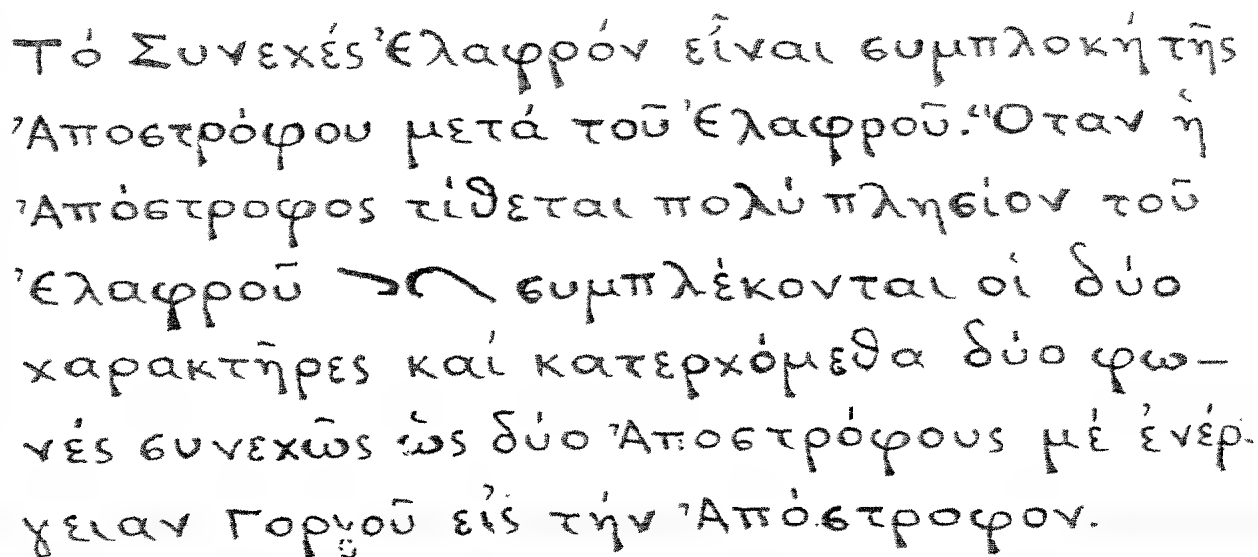 Τό Συνεχές Ἐλαφρόν εἶναι συμπλοκή τῆς
Ἀποστρόφου μετά τοῦ Ἐλαφροῦ. Ὅταν ἡ
Ἀπόστροφος τίθεται πολύ πλησίον τοῦ
Ἐλαφροῦ συμπλέκονται οἱ δύο
χαρακτῆρες καί κατερχόμεθα δύο φω-
νές συνεχῶς ὡς δύο Ἀποστρόφους μέ ἐνέρ-
γειαν Γοργοῦ εἰς τήν Ἀπόστροφον.